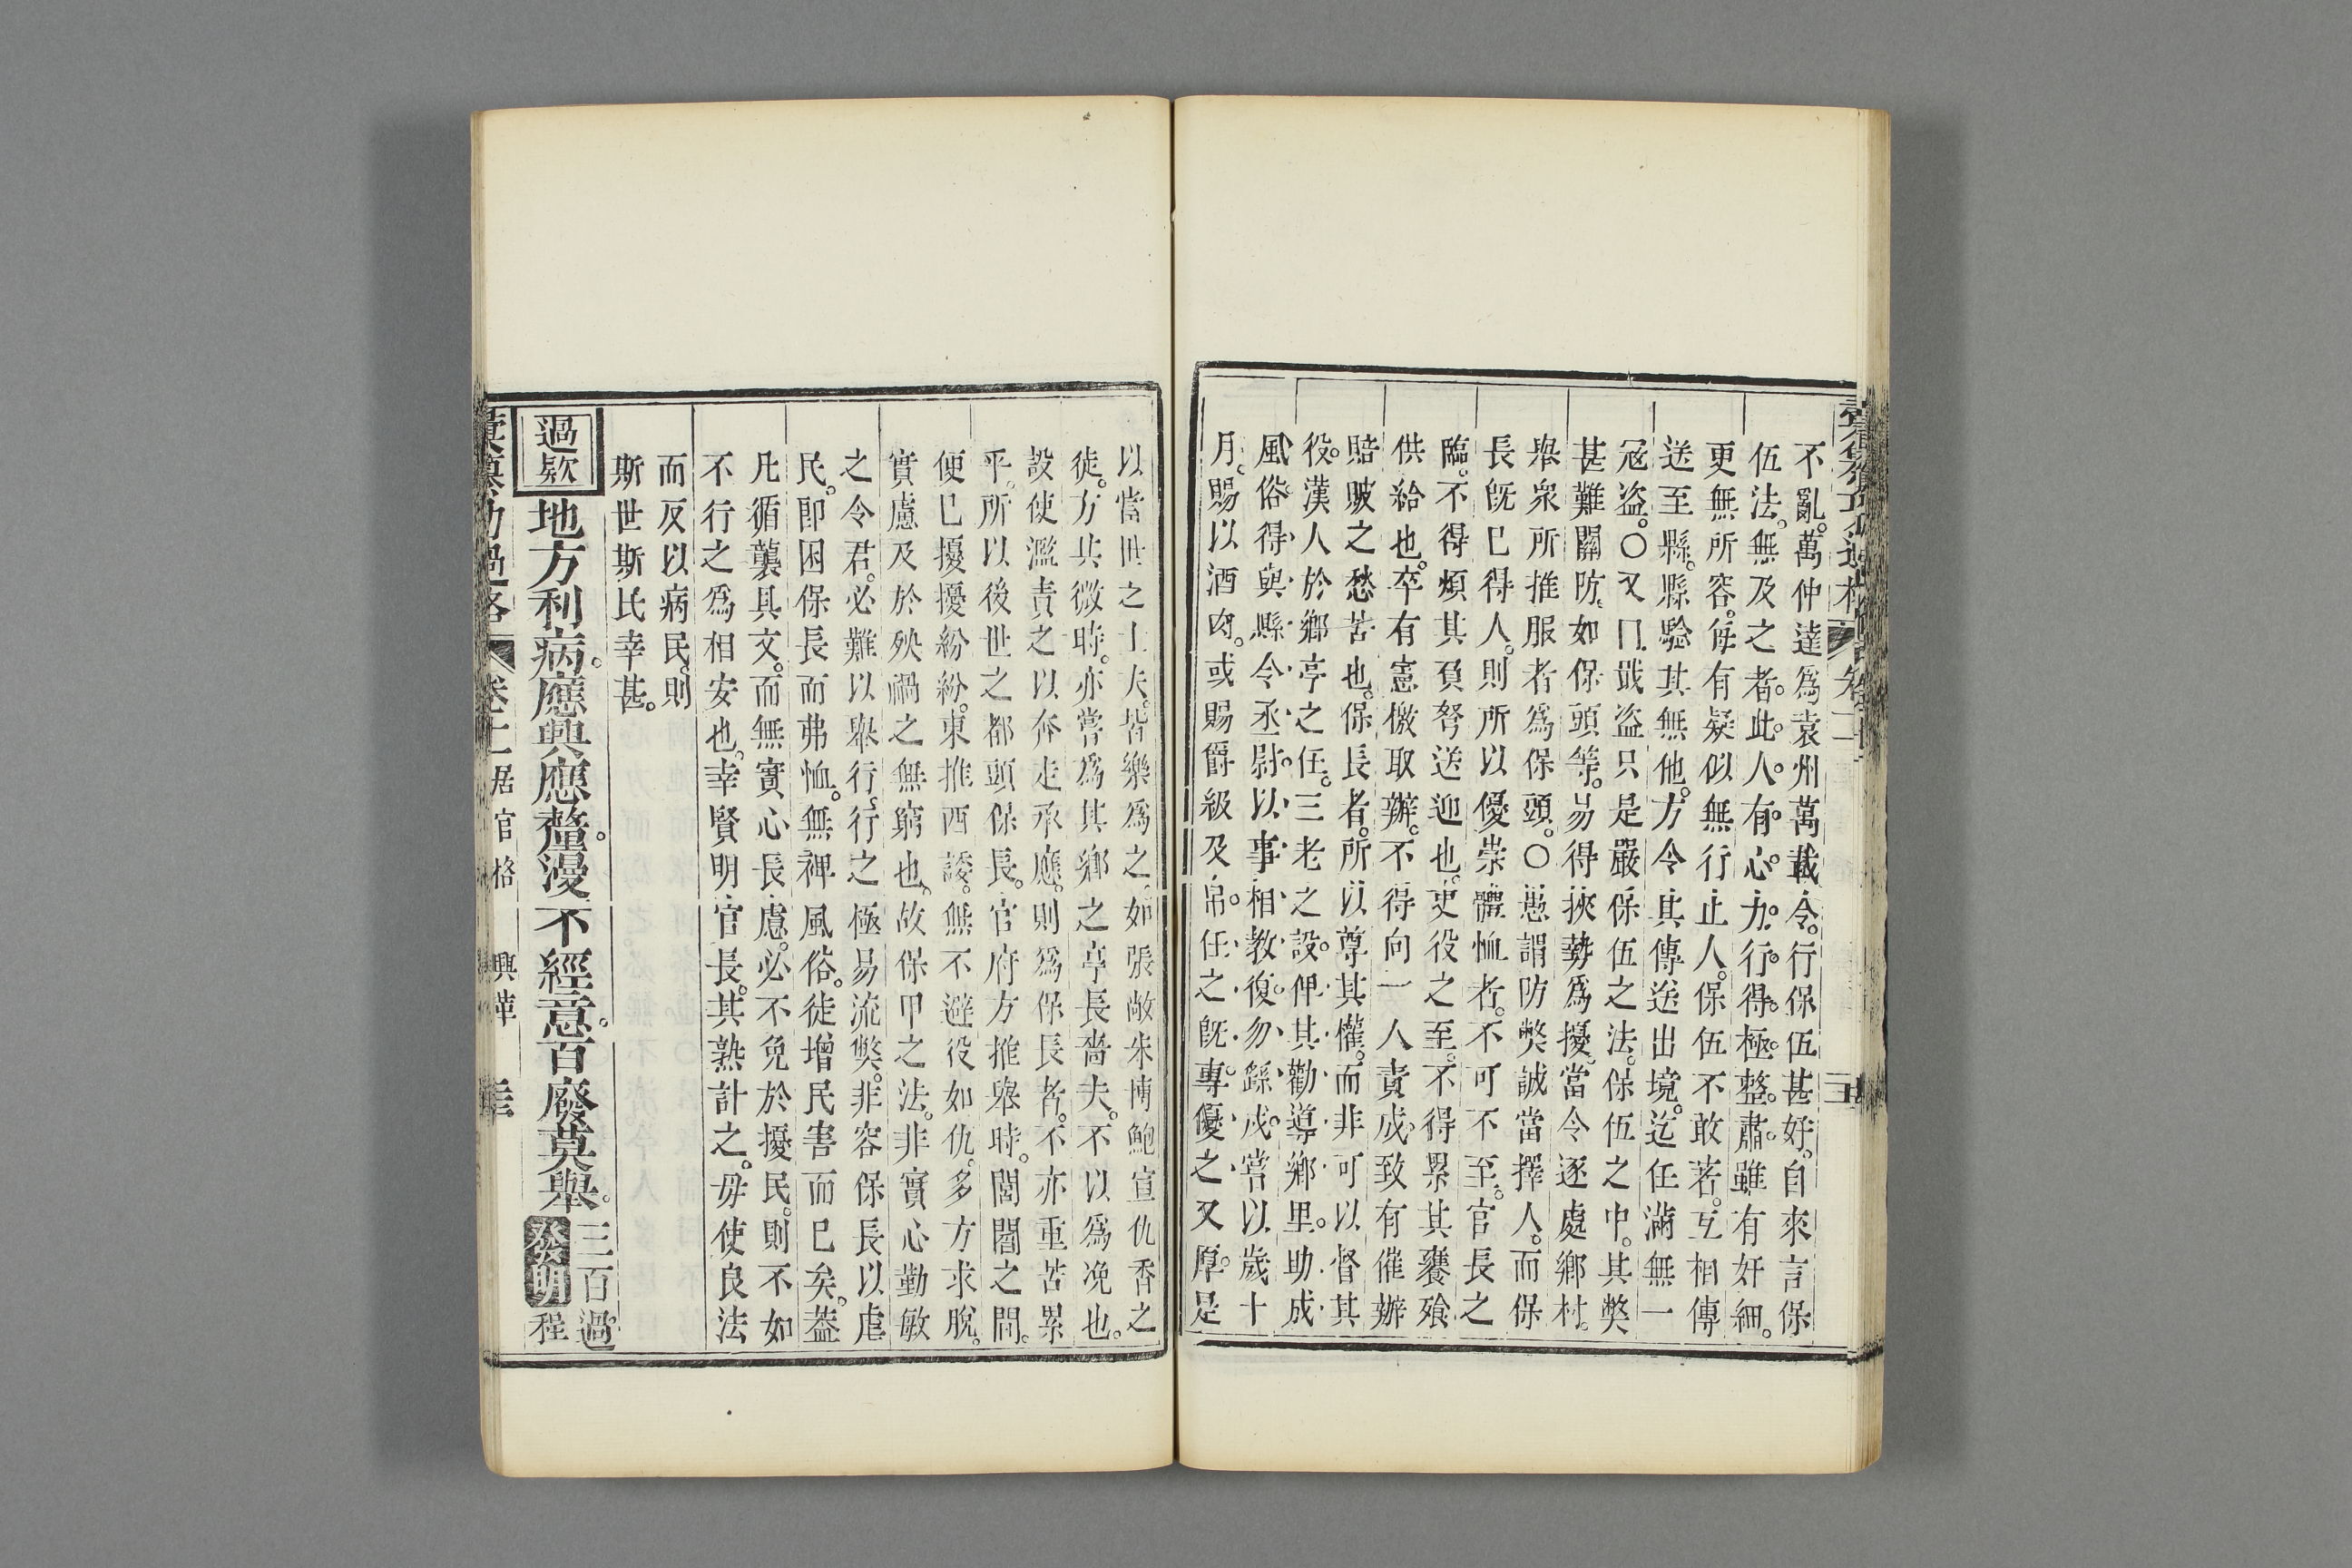 不亂。萬仲達爲袁州萬載令。行保伍甚好。自來言保
伍法。無及之者。此人有心力。行得極整肅。雖有奸細。
更無所容。每有疑似無行止人。保伍不敢若。互相傳
送至縣。縣驗其無他。方令其傳送出境。迄任滿無一
冦盗。〇又曰。戢盗只是嚴保伍之法。保伍之中。其弊
甚難關防。如保頭等。易得挾勢爲擾。當令逐處鄉村。
舉衆所推服者爲保頭。〇愚謂防弊誠當擇人。而保
長旣已得人。則所以優崇體恤者。不可不至。官長之
臨。不得煩其負弩送迎也。吏役之至。不得累其饔飱
供給也。卒有憲檄取辦。不得向一人責成。致有催辦
賠賍之愁苦也。保長者。所以尊其權。而非可以督其
役。漢人於鄉亭之任。三老之設。俾其勸導鄉里。助成
風俗。得與縣令丞尉。以事相教。復勿繇戍。嘗以歲十
月。賜以酒肉。或賜爵級及帛。任之旣專。優之又厚。是
以當世之士大夫。皆樂爲之。如張敞朱博鮑宣仇香之
徒。方其微時。亦嘗爲其鄉之亭長嗇夫。不以爲凂也。
設使濫責之以奔走承應。則爲保長者。不亦重苦累
乎。所以後世之都頭保長。官府方推舉時。閭閻之間。
便已擾擾紛紛。東推西諉。無不避役如仇。多方求脫。
實慮及於殃禍之無窮也。故保甲之法。非實心勤敏
之令君。必難以舉行。行之極易流弊。非容保長以虐
民。卽困保長而弗恤。無裨風俗。徒增民害而已矣。葢
凡循襲具文。而無實心長慮。必不免於擾民。則不如
不行之爲相安也。幸賢明官長。其熟計之。毋使良法
而反以病民。則
斯世斯民幸甚。
過欵 地方利病。應興應釐。漫不經意。百廢莫舉。三百過 發明 程
彙纂功過格 卷十一 居官格 興革 三